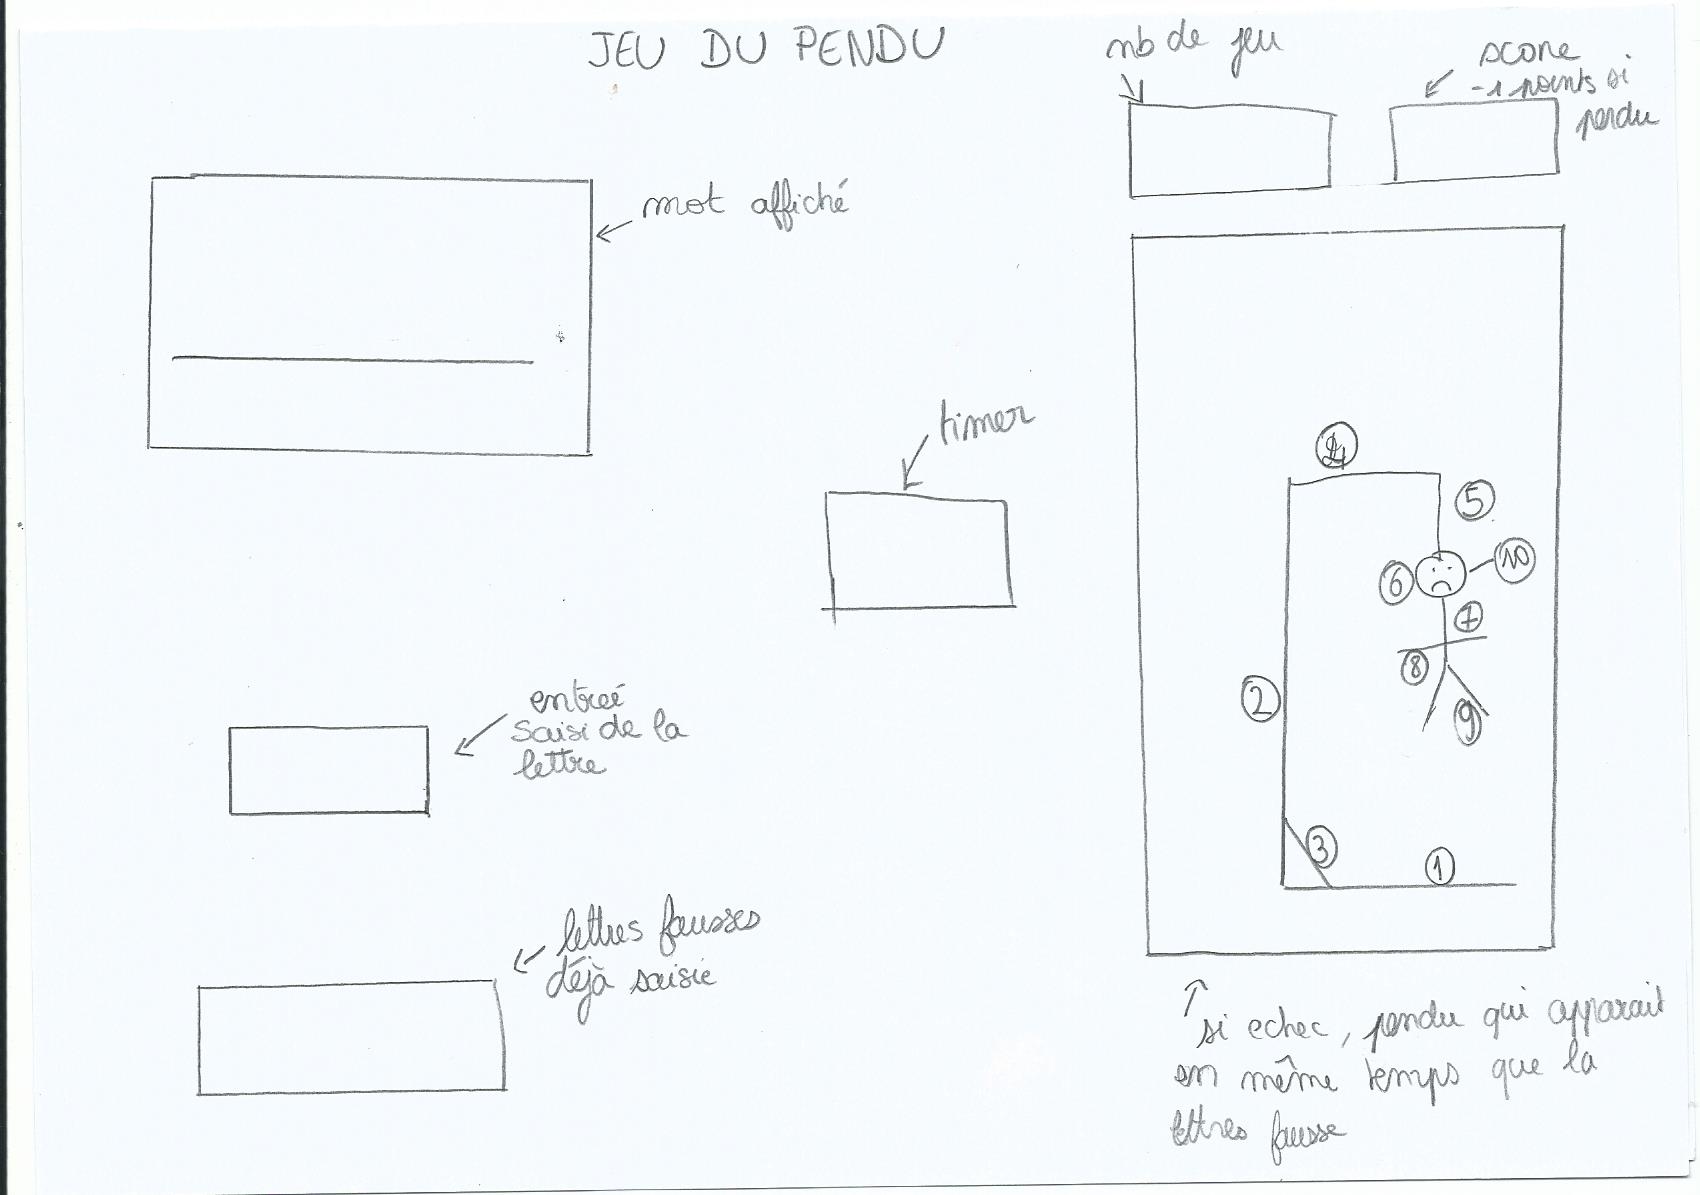 JEU DU PENDU
nb de jeu
score
-1 points si
perdu
mot affiché
timer
4
5
10
6
7
8
2
9
3
1
entreé
saisi de la
lettre
lettres fausses
déjà saisie
si echec, pendu qui apparait
en même temps que la
lettres fausse